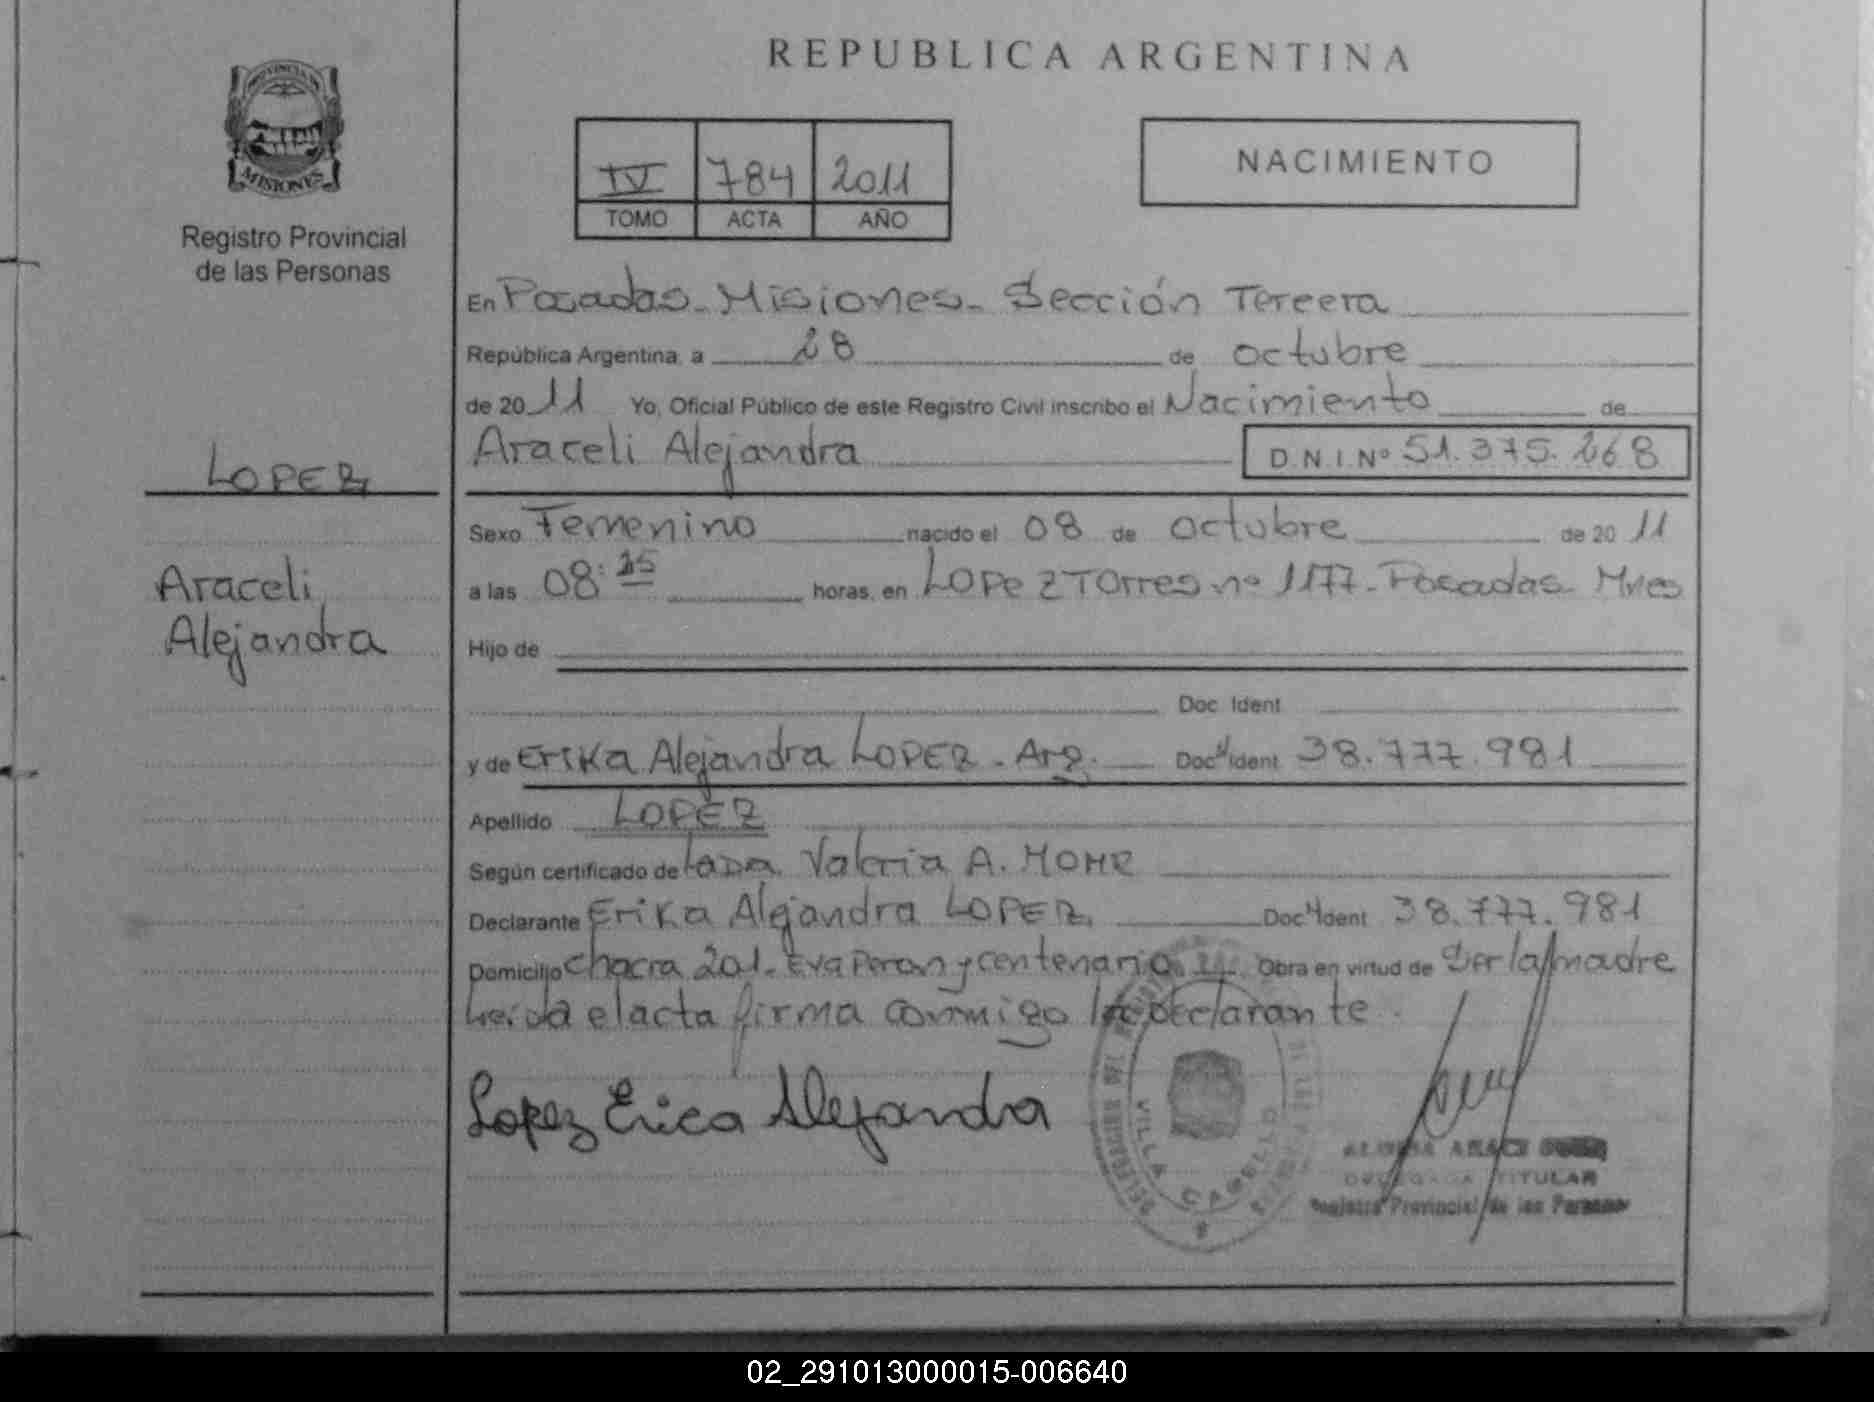 REPUBLICA ARGENTINA
PROVINCIA DE
MISIONES
Registro Provincial
de las Personas
IV 784 2011
TOMO ACTA AÑO
NACIMIENTO
En Posadas - Misiones - Sección Tercera
República Argentina, a 28 de octubre
de 2011 Yo, Oficial Público de este Registro Civil inscribo el Nacimiento de
Araceli Alejandra D.N.I.Nº 51.375.268
LOPEZ
Sexo Femenino nacido el 08 de octubre de 2011
a las 08:25 horas, en LOPEZ TOrres nº 1177 - Posadas - Mnes
Araceli
Alejandra
Hijo de
Doc. Ident
y de Erika Alejandra LOPEZ - Arg. Doc Ident 38.777.981
Apellido LOPEZ
Según certificado de Valeria A. MOHR
Declarante Erika Alejandra LOPEZ Doc Ident 38.777.981
Domicilio chacra 201 - Eva Peron y centenario Obra en virtud de Ser la madre
Leída el acta firma conmigo la declarante.
Lopez Erica Alejandra
VILLA CABELLO
TITULAR
Registro Provincial de las Personas
02_291013000015-006640